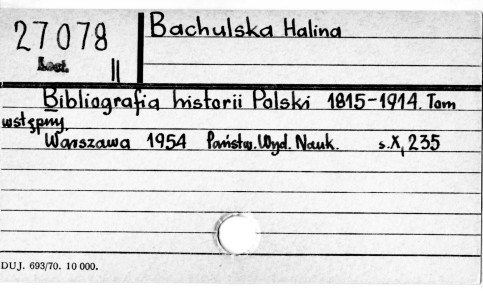 27078
II
Bachulska Halina
Bibliografia historii Polski 1815-1914. Tom
wstępny.
Warszawa 1954 Państw. Wyd. Nauk. s. X, 235
DUJ. 693/70. 10 000.